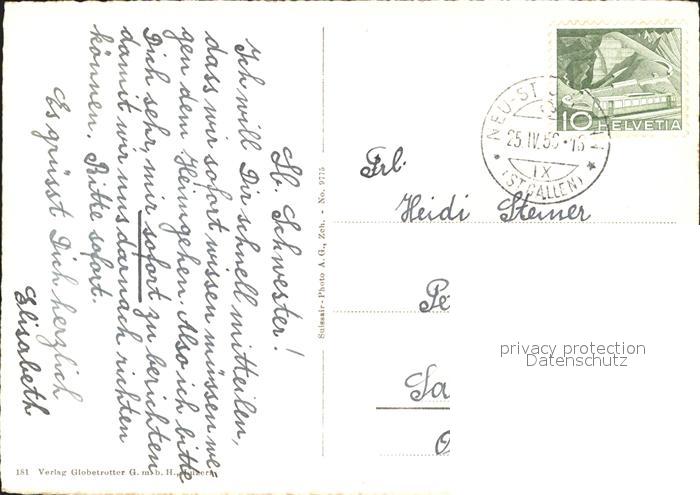 Lb. Schwester!
Ich will Dir schnell mitteilen,
dass wir sofort wissen müssen we-
gen dem Heimgehen. Also ich bitte
Dich sehr, mir sofort zu berichten
damit wir uns darnach richten
können. Bitte sofort.
Es grüsst Dich herzlich
Elisabeth
181 Verlag Globetrotter G. m. b. H., Luzern
Suissair-Photo A. G., Zch. - No. 9775
10 HELVETIA
NEU-ST
25.IV.56-18
IX
(ST. GALLEN)
Frl.
Heidi Steiner
Pe
Sa
privacy protection
Datenschutz